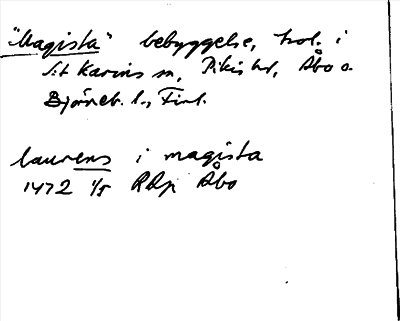 "Magista" bebyggelse, trol. i
S:t Karins sn, Pikis hd, Åbo o.
Björneb. l., Finl.
laurens i magista
1472 1/5 RAp Åbo